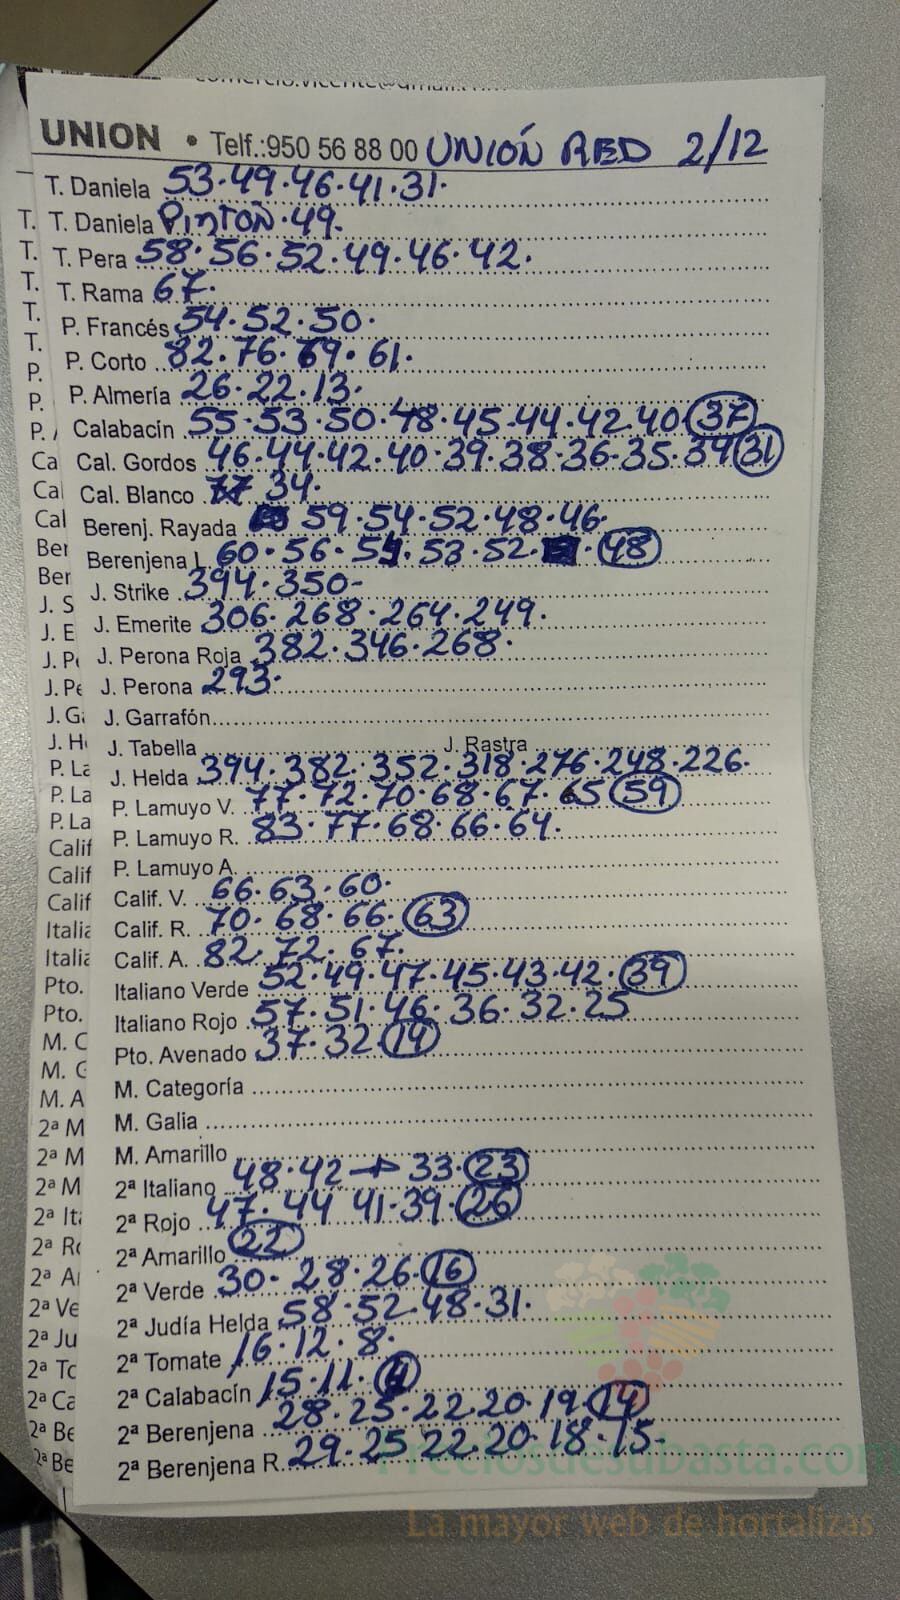 UNION • Telf.:950 56 88 00 UNIÓN RED 2/12
T. Daniela 53.49.46.41.31.
T. T. Daniela PINTON.49.
T. T. Pera 58.56.52.49.46.42.
T. T. Rama 67.
T. P. Francés 54.52.50.
T. P. Corto 82.76.69.61.
P. P. Almería 26.22.13.
P. Calabacín 55.53.50.48.45.44.42.40.37
P. / Cal. Gordos 46.44.42.40.39.38.36.35.34 31
Ca Cal. Blanco 34.
Cal Berenj. Rayada 59.54.52.48.46.
Cal Berenjena L 60.56.54.53.52. 48
Ber J. Strike 394.350-
Ber J. Emerite 306.268.264.249.
J. S J. Perona Roja 382.346.268.
J. E J. Perona 293.
J. Pe J. Garrafón
J. Pe J. Tabella J. Rastra
J. Ga J. Helda 394.382.352.318.276.248.226.
J. H P. Lamuyo V. 77.72.70.68.67.65 59
P. La P. Lamuyo R. 83.77.68.66.64.
P. La P. Lamuyo A.
P. La Calif. V. 66.63.60.
Calif Calif. R. 70.68.66.63
Calif Calif. A. 82.72.67.
Calif Italiano Verde 52.49.47.45.43.42.39
Italia Italiano Rojo 57.51.46.36.32.25
Italia Pto. Avenado 37.32.19
Pto. M. Categoría
Pto. M. Galia
M. C M. Amarillo
M. G 2ª Italiano 48.42 → 33.23
M. A 2ª Rojo 47.44 41.39.26
2ª M 2ª Amarillo 22
2ª M 2ª Verde 30-28.26.16
2ª M 2ª Judía Helda 58.52.48.31.
2ª Ita 2ª Tomate 16.12.8.
2ª Ro 2ª Calabacín 15.11.
2ª A 2ª Berenjena 28.25.22.20.19.
2ª Ve 2ª Berenjena R. 29.25 22.20.18.15.
2ª Ju
2ª To
2ª Ca
2ª Be
2ª Be
Preciosdesubasta.com
La mayor web de hortalizas